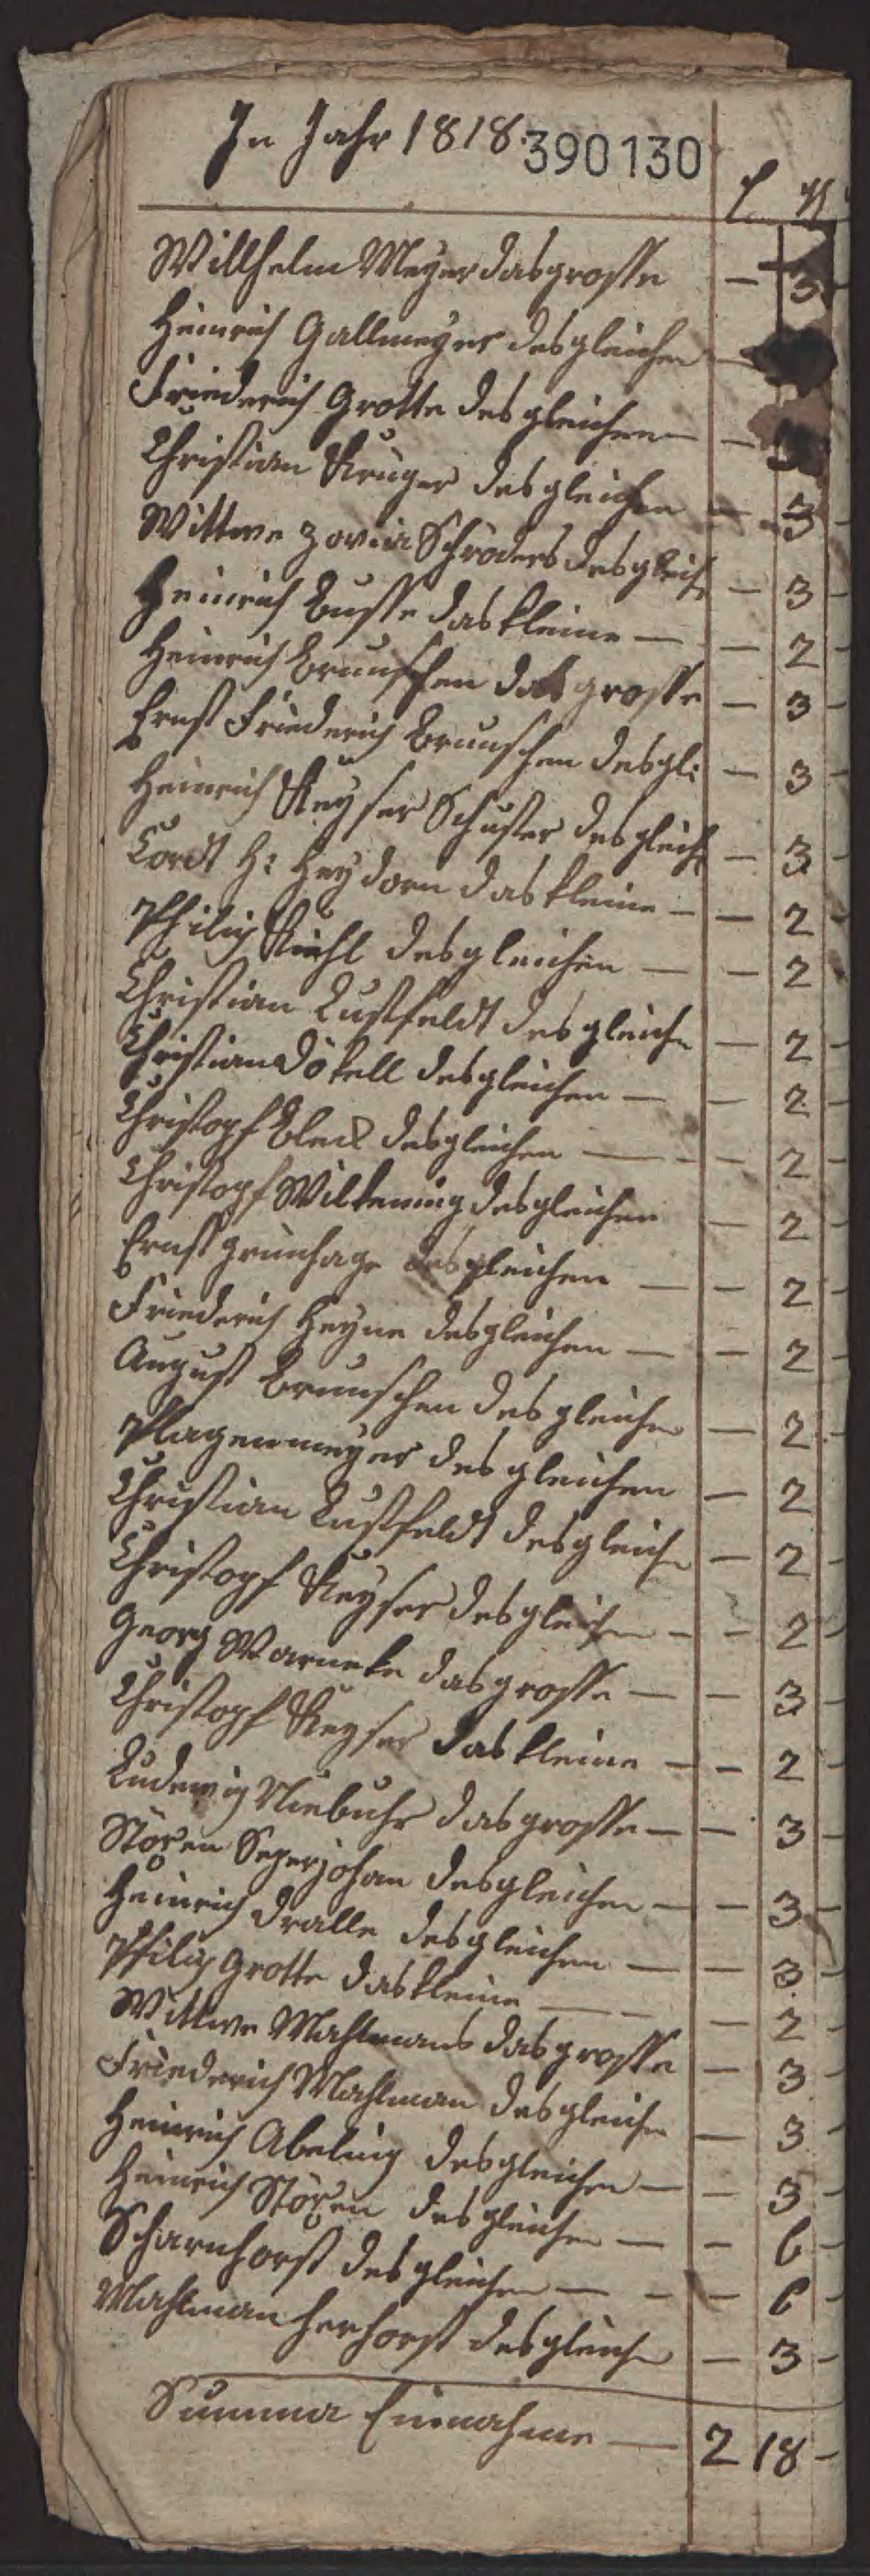 In Jahr 1818.
390130
Willhelm Meyer das grosse — 3
Heinrich Gallmeyer desgleichen —
Friederich Grotte desgleichen — — 3
Christian Kruger desgleichen — — 3
Wittwe Schröders desgleich — 3
Heinrich Busse das kleine — — 2
Heinrich Brunschen das grosse — 3
Ernst Friederich Brunschen desgl: — 3
Heinrich Keyser Schuster desgleich — 3
Cordt H: Heydorn das kleine — — 2
Philip Kuhl desgleichen — — 2
Christian Lustfeldt desgleichen — 2
Christian Dökell desgleichen — — 2
Christopf Bleck desgleichen — — 2
Christopf Wilkening desgleichen — 2
Ernst Grunhage desgleichen — — 2
Friederich Heyne desgleichen — — 2
August Brunschen desgleichen — 2
Plagenmeyer desgleichen — 2
Christian Lustfeldt desgleichen — 2
Christopf Keyser desgleichen — — 2
Georg Warneke das grosse — — 3
Christopf Keyser das kleine — — 2
Ludewig Niebuhr das grosse — — 3
Stöxen Segerjohan desgleichen — — 3
Heinrich Dralle desgleichen — — 3
Philip Grotte das kleine — — 2
Wittwe Mahlmans das grosse — 3
Friederich Mahlman desgleichen — 3
Heinrich Abeling desgleichen — — 3
Heinrich Stöxen desgleichen — — 6
Scharnhorst desgleichen — — 6
Mahlman Herhorst desgleichen — 3
Summa Einnahme — 2 18